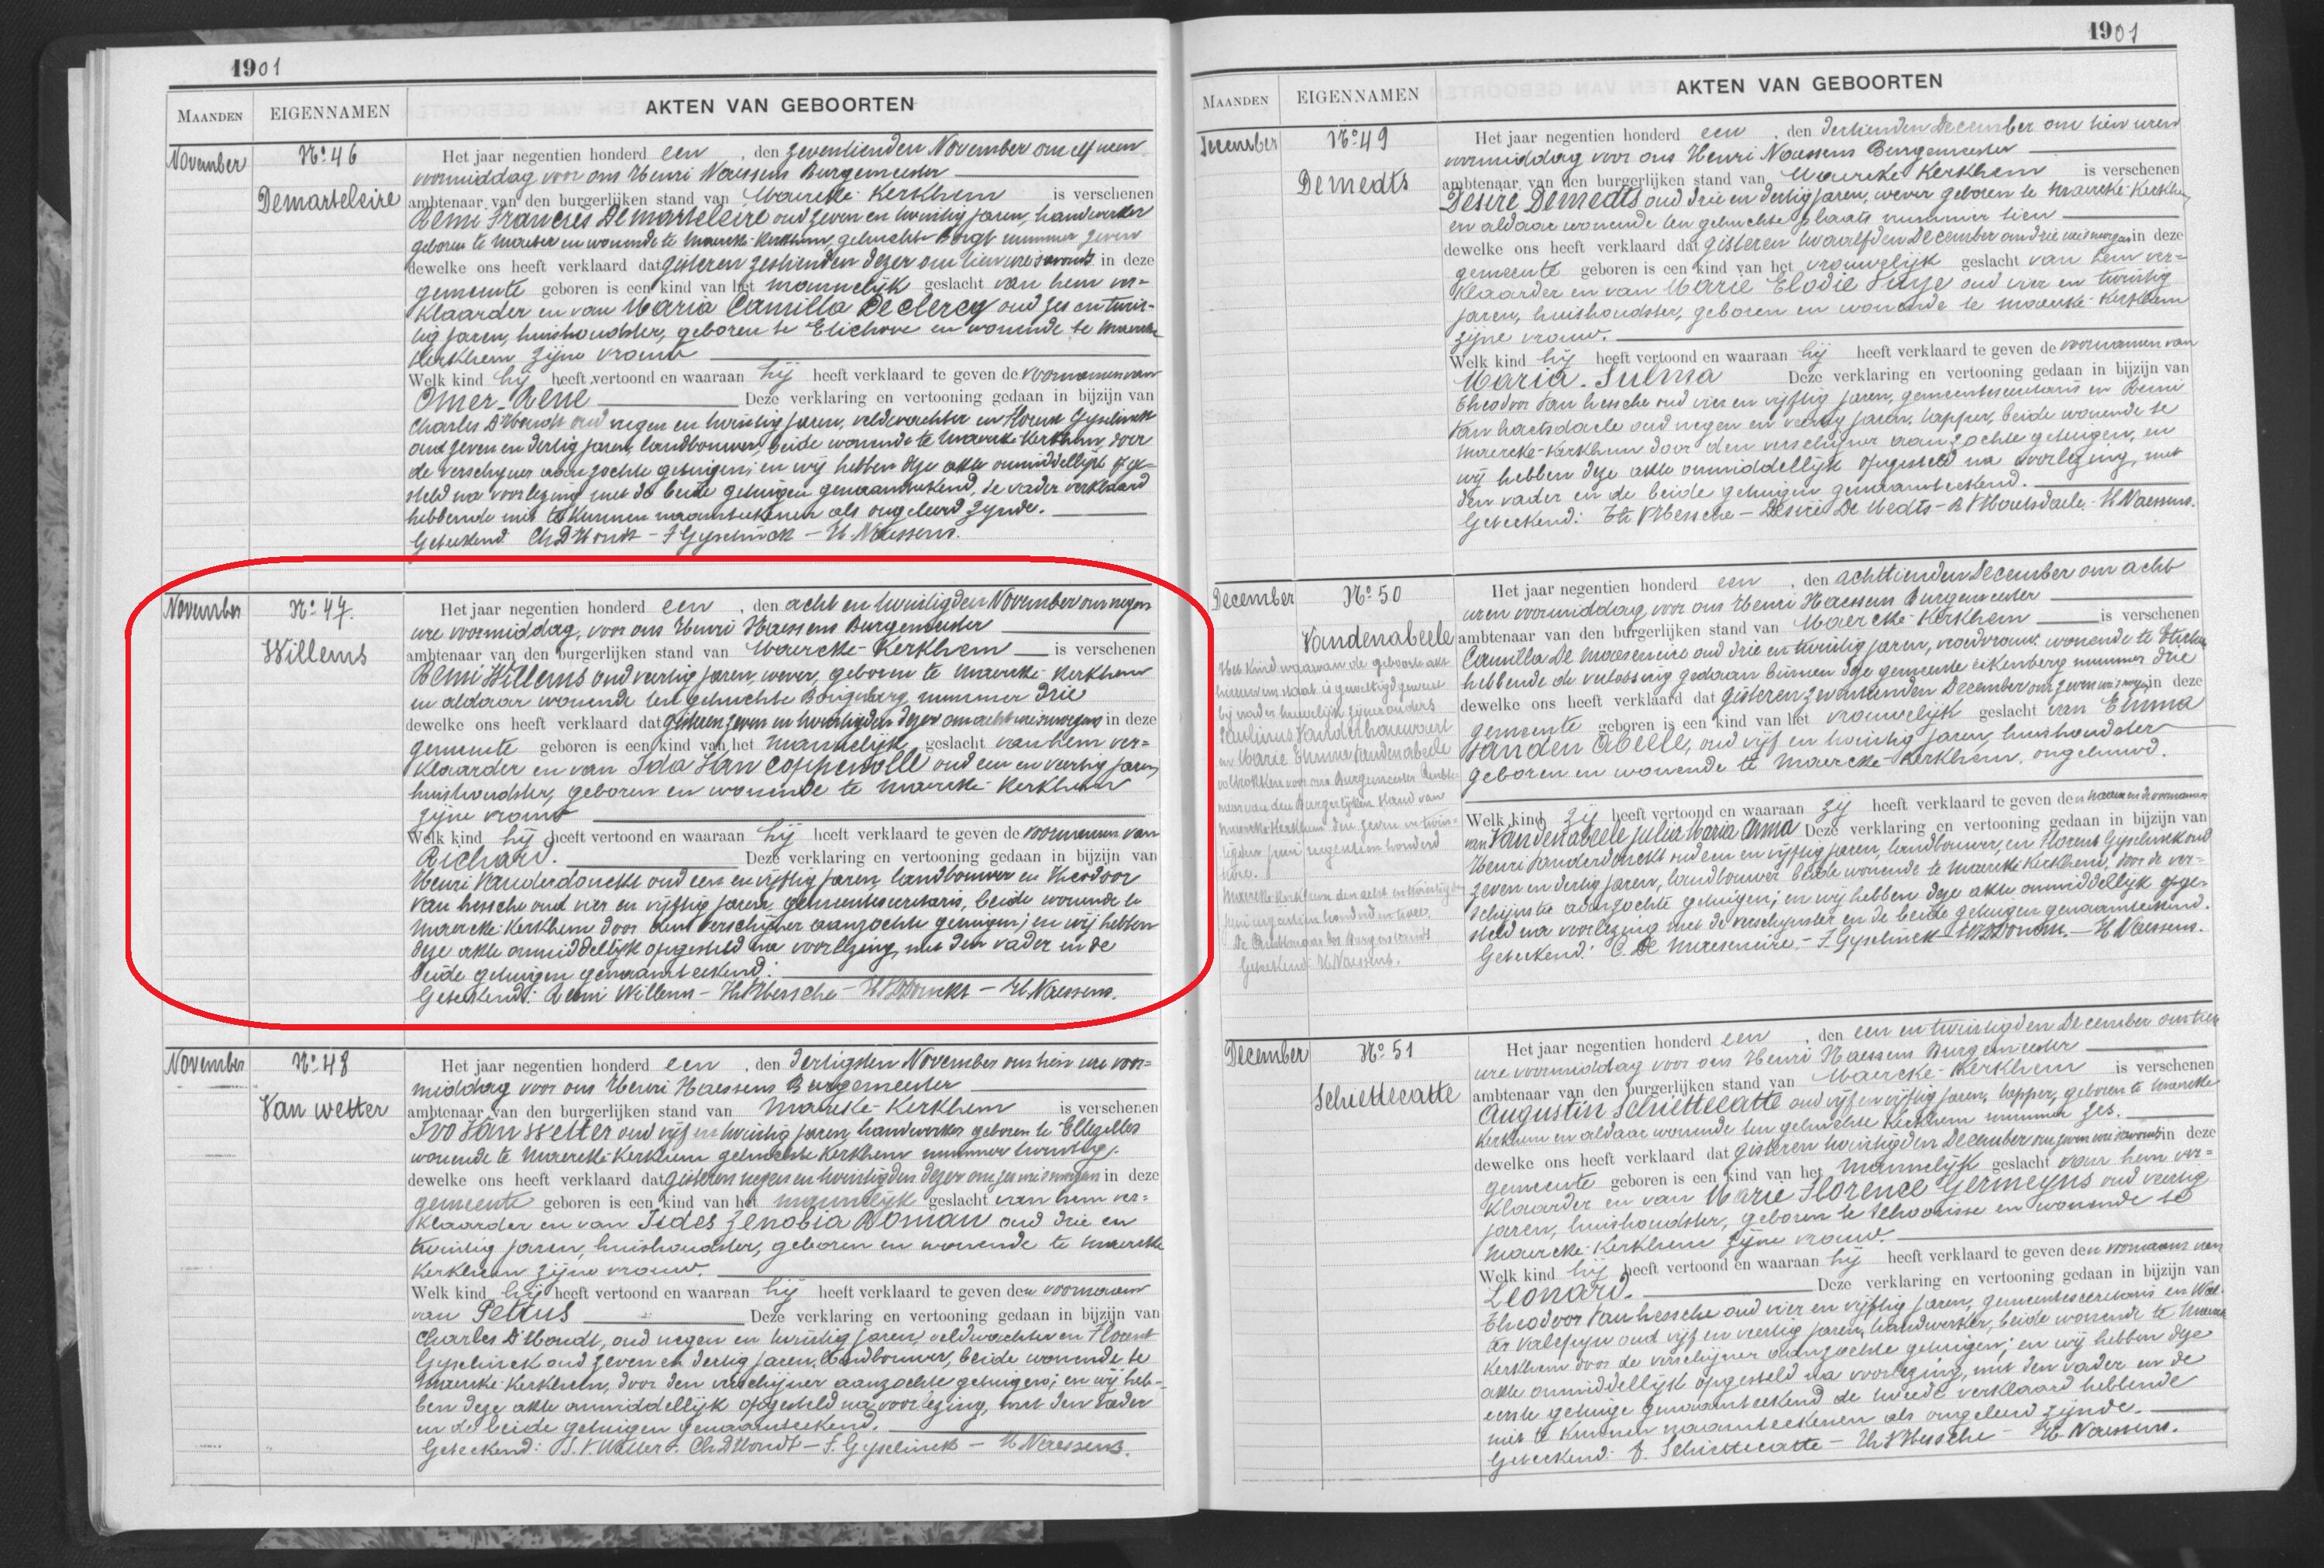 1901
MAANDEN
EIGENNAMEN
AKTEN VAN GEBOORTEN
November
No 46
Demarteleire
Het jaar negentien honderd een, den zeventienden November om elf uren
voormiddag voor ons Henri Naessens Burgemeester
ambtenaar van den burgerlijken stand van Maercke-Kerkhem is verschenen
Remi Francies Demarteleire oud zeven en twintig jaren, handwerker
geboren te Maeter en wonende te Maercke-Kerkhem, gehucht Borgt nummer zeven
dewelke ons heeft verklaard dat gisteren zestienden dezer om tien ure s'avonds in deze
gemeente geboren is een kind van het mannelijk geslacht van hem ver=
klaarder en van Maria Camilla De Clercq oud zes en twin-
tig jaren, huishoudster, geboren te Etichove en wonende te Maercke
Kerkhem zijne vrouw
Welk kind hij heeft vertoond en waaraan hij heeft verklaard te geven de voornamen van
Omer-Rene Deze verklaring en vertooning gedaan in bijzijn van
Charles D'Hondt oud negen en twintig jaren, veldwachter en Florent Gyselinck
oud zeven en dertig jaren, landbouwer, beide wonende te Maercke-Kerkhem, door
de verschijner aanzochte getuigen; en wij hebben deze akte onmiddellijk opge=
steld na voorlezing met de beide getuigen genaamteekend, de vader verklaard
hebbende niet te kunnen naamteekenen als ongeleerd zijnde.
Geteekend Ch D'Hondt - F Gyselinck - H. Naessens.
November
No 47.
Willems
Het jaar negentien honderd een, den acht en twintigden November om negen
ure voormiddag, voor ons Henri Naessens Burgemeester
ambtenaar van den burgerlijken stand van Maercke-Kerkhem is verschenen
Remi Willems oud veertig jaren, wever, geboren te Maercke-Kerkhem
en aldaar wonende ten gehuchte Borgtberg nummer drie
dewelke ons heeft verklaard dat gisteren zeven en twintigden dezer om acht ure s'morgens in deze
gemeente geboren is een kind van het mannelijk geslacht van hem ver=
klaarder en van Ida Van Coppenolle oud een en veertig jaren,
huishoudster, geboren en wonende te Maercke-Kerkhem
zijne vrouw
Welk kind hij heeft vertoond en waaraan hij heeft verklaard te geven de voornamen van
Richard. Deze verklaring en vertooning gedaan in bijzijn van
Henri Vanderdonckt oud een en vijftig jaren, landbouwer en Theodoor
Van hessche oud vier en vijftig jaren, gemeentesecretaris, beide wonende te
Maercke-Kerkhem door den verschijner aanzochte getuigen; en wij hebben
deze akte onmiddellijk opgesteld na voorlezing, met den vader en de
beide getuigen genaamteekend.
Geteekend: Remi Willems - Th VHessche - H VDonckt - H. Naessens.
November
No 48
Van wetter
Het jaar negentien honderd een, den dertigsten November om tien ure voor=
middag voor ons Henri Naessens Burgemeester
ambtenaar van den burgerlijken stand van Maercke-Kerkhem is verschenen
Ivo Van Wetter oud vijf en twintig jaren, handwerker geboren te Ellezelles
wonende te Maercke-Kerkhem gehuchte Kerkhem nummer twintig.
dewelke ons heeft verklaard dat gisteren negen en twintigden dezer om zes ure s'morgens in deze
gemeente geboren is een kind van het mannelijk geslacht van hem ver=
klaarder en van Isdes Zenobia Roman oud drie en
twintig jaren, huishoudster, geboren en wonende te Maercke
Kerkhem zijne vrouw.
Welk kind hij heeft vertoond en waaraan hij heeft verklaard te geven den voornaam
van Petrus Deze verklaring en vertooning gedaan in bijzijn van
Charles D'Hondt, oud negen en twintig jaren, veldwachter en Florent
Gyselinck oud zeven en dertig jaren, landbouwer, beide wonende te
Maercke-Kerkhem, door den verschijner aanzochte getuigen; en wij heb-
ben deze akte onmiddellijk opgesteld na voorlezing, met den vader
en de beide getuigen genaamteekend.
Geteekend: I. V. Wetter. Ch D'Hondt - F. Gyselinck - H Naessens.
1901
MAANDEN
EIGENNAMEN
AKTEN VAN GEBOORTEN
December
No 49
Demedts
Het jaar negentien honderd een, den dertienden December om tien uren
voormiddag voor ons Henri Naessens Burgemeester
ambtenaar van den burgerlijken stand van Maercke-Kerkhem is verschenen
Desiré Demedts oud drie en dertig jaren, wever geboren te Maercke-Kerkhem
en aldaar wonende ten gehuchte plaats nummer tien
dewelke ons heeft verklaard dat gisteren twaalfden December om drie ure s'morgens in deze
gemeente geboren is een kind van het vrouwelijk geslacht van hem ver=
klaarder en van Marie Elodie oud vier en twintig
jaren, huishoudster, geboren en wonende te Maercke-Kerkhem
zijne vrouw.
Welk kind hij heeft vertoond en waaraan hij heeft verklaard te geven de voornamen van
Maria-Sulma Deze verklaring en vertooning gedaan in bijzijn van
Theodoor Van hessche oud vier en vijftig jaren, gemeentesecretaris en Remi
Van haetsdaele oud negen en veertig jaren, kapper, beide wonende te
Maercke-Kerkhem door den verschijner aanzochte getuigen, en
wij hebben deze akte onmiddellijk opgesteld na voorlezing, met
den vader en de beide getuigen genaamteekend.
Geteekend: Th VHessche - Desiré De Medts - R VHaetsdaele - H Naessens.
December
No 50
Vandenabeele
Het kind waarvan de geboorte akt
hiernevens staat is gewettigd geweest
bij van der huwelijk zijner ouders
Paulinus Vanderhauwaert
en Marie Emma Vandenabeele
voltrokken voor ons Burgemeester Ambte-
naar van den Burgerlijken Stand van
Maercke Kerkhem den zeven en twin-
tigden juni negentien honderd
twee.
Maercke Kerkhem den acht en twintigden
juni negentien honderd en twee.
De Ambtenaar des Burgerstands
Geteekend: H Naessens.
Het jaar negentien honderd een, den achttienden December om acht
uren voormiddag, voor ons Henri Naessens Burgemeester
ambtenaar van den burgerlijken stand van Maercke-Kerkhem is verschenen
Camilla De Maeseneire oud drie en twintig jaren, vroedvrouw wonende te Etichove
hebbende de verlossing gedaan binnen deze gemeente Eikenberg nummer drie
dewelke ons heeft verklaard dat gisteren zeventienden December om zeven ure s'morgens in deze
gemeente geboren is een kind van het vrouwelijk geslacht van Emma
Vanden Abeele, oud vijf en twintig jaren, huishoudster
geboren en wonende te Maercke-Kerkhem, ongehuwd.
Welk kind zij heeft vertoond en waaraan zij heeft verklaard te geven den naam en de voornamen
van Vandenabeele Julia Maria Anna Deze verklaring en vertooning gedaan in bijzijn van
Henri Vanderdonckt oud een en vijftig jaren, landbouwer, en Florent Gyselinck oud
zeven en dertig jaren, landbouwer beide wonende te Maercke Kerkhem, door de ver-
schijnster aanzochte getuigen; en wij hebben deze akte onmiddellijk opge-
steld na voorlezing met de verschijnster en de beide getuigen genaamteekend.
Geteekend: C. De Maeseneire - F. Gyselinck - H VDonckt. - H Naessens.
December
No 51
Schiettecatte
Het jaar negentien honderd een, den een en twintigden December om tien
ure voormiddag voor ons Henri Naessens Burgemeester
ambtenaar van den burgerlijken stand van Maercke-Kerkhem is verschenen
Augustin Schiettecatte oud vijf en vijftig jaren, kapper, geboren te Maercke
Kerkhem en aldaar wonende ten gehuchte Kerkhem nummer zes.
dewelke ons heeft verklaard dat gisteren twintigden December om zeven ure s'avonds in deze
gemeente geboren is een kind van het mannelijk geslacht van hem ver=
klaarder en van Marie Florence Germeyns oud veertig
jaren, huishoudster, geboren te Schoorisse en wonende te
Maercke-Kerkhem zijne vrouw.
Welk kind hij heeft vertoond en waaraan hij heeft verklaard te geven den voornaam van
Leonard. Deze verklaring en vertooning gedaan in bijzijn van
Theodoor Van hessche oud vier en vijftig jaren, gemeentesecretaris en
Valepyn oud vijf en veertig jaren, handwerker, beide wonende te Maercke
Kerkhem door de verschijner aanzochte getuigen; en wij hebben deze
akte onmiddellijk opgesteld na voorlezing, met den vader en de
eerste getuige genaamteekend de tweede verklaard hebbende
niet te kunnen naamteekenen als ongeleerd zijnde.
Geteekend: A. Schiettecatte - Th VHessche - H. Naessens.